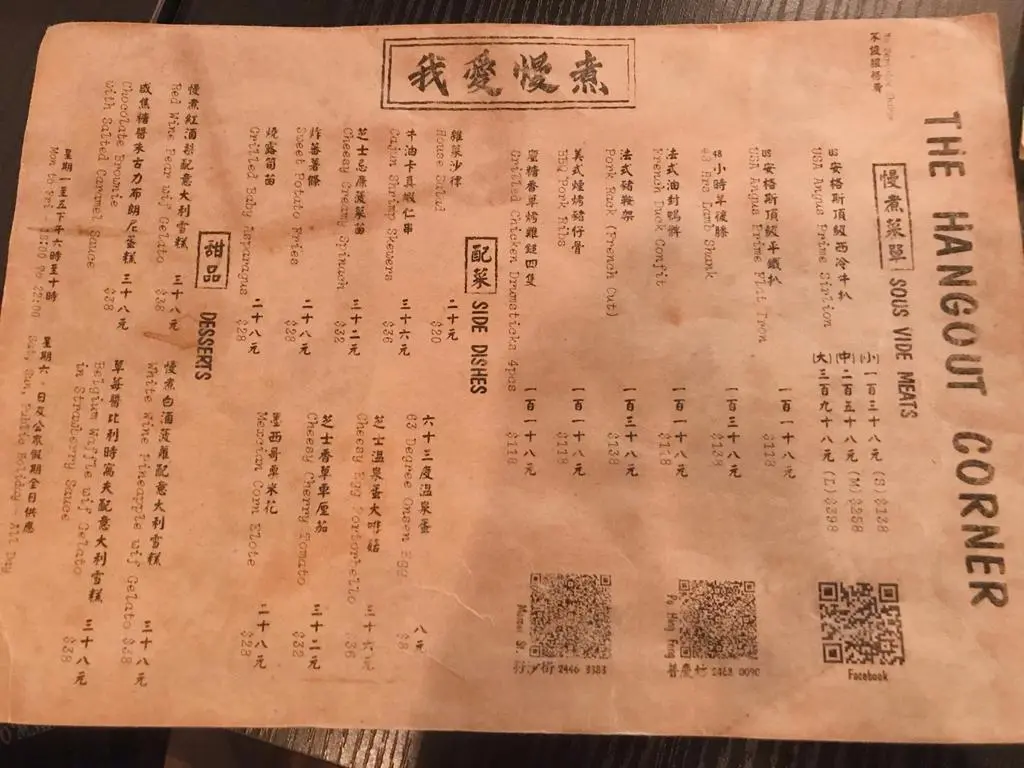 THE HANGOUT CORNER
我愛慢煮
慢煮菜單 SOUS VIDE MEATS
USA Angus Prime Sirloin
(小) 一百三十八元 (S) $138
(中) 二百五十八元 (M) $258
(大) 三百九十八元 (L) $398
USA Angus Prime Flat Iron
一百一十八元 $118
48小時羊後膝 一百三十八元
48 Hrs Lamb Shank $138
法式油封鴨髀 一百一十八元
French Duck Confit $118
法式豬鞍架 一百三十八元
Pork Rack (French Cut) $138
美式煙烤豬仔骨 一百一十八元
BBQ Pork Ribs $118
一百一十八元
Grilled Chicken Drumsticks 4pcs $118
配菜 SIDE DISHES
雜菜沙律 二十元
House Salad $20
牛油卡真蝦仁串 三十六元
Cajun Shrimp Skewers $36
三十二元
Cheesy Creamy Spinach $32
炸蕃薯條 二十八元
Sweet Potato Fries $28
燒露筍苗 二十八元
Grilled Baby Asparagus $28
六十三度溫泉蛋 八元
63 Degree Onsen Egg $8
芝士溫泉蛋大啡菇 三十六元
Cheesy Egg Portobello $36
芝士香草車厘茄 三十二元
Cheesy Cherry Tomato $32
墨西哥粟米花 二十八元
Mexican Corn Elote $28
甜品 DESSERTS
慢煮紅酒梨配意大利雪糕 三十八元
Red Wine Pear w/f Gelato $38
咸焦糖醬朱古力布朗尼蛋糕 三十八元
Chocolate Brownie $38
with Salted Caramel Sauce
慢煮白酒菠蘿配意大利雪糕 三十八元
White Wine Pineapple w/f Gelato $38
草莓醬比利時窩夫配意大利雪糕 三十八元
Belgium Waffle w/f Gelato $38
in Strawberry Sauce
星期一至五下午六時至十時
Mon to Fri - 18:00 to 22:00
星期六、日及公眾假期全日供應
Sat, Sun, Public Holiday - All Day
Facebook
Po Hing Fong
普慶坊 2468 0090
2446 3383